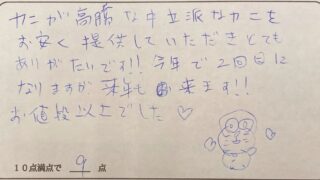 カニが高騰な中立派なカニを
お安く提供していただきとても
ありがたいです!!今年で2回目に
なりますが、来年も来ます!!
お値段以上でした♡
10点満点で 9 点